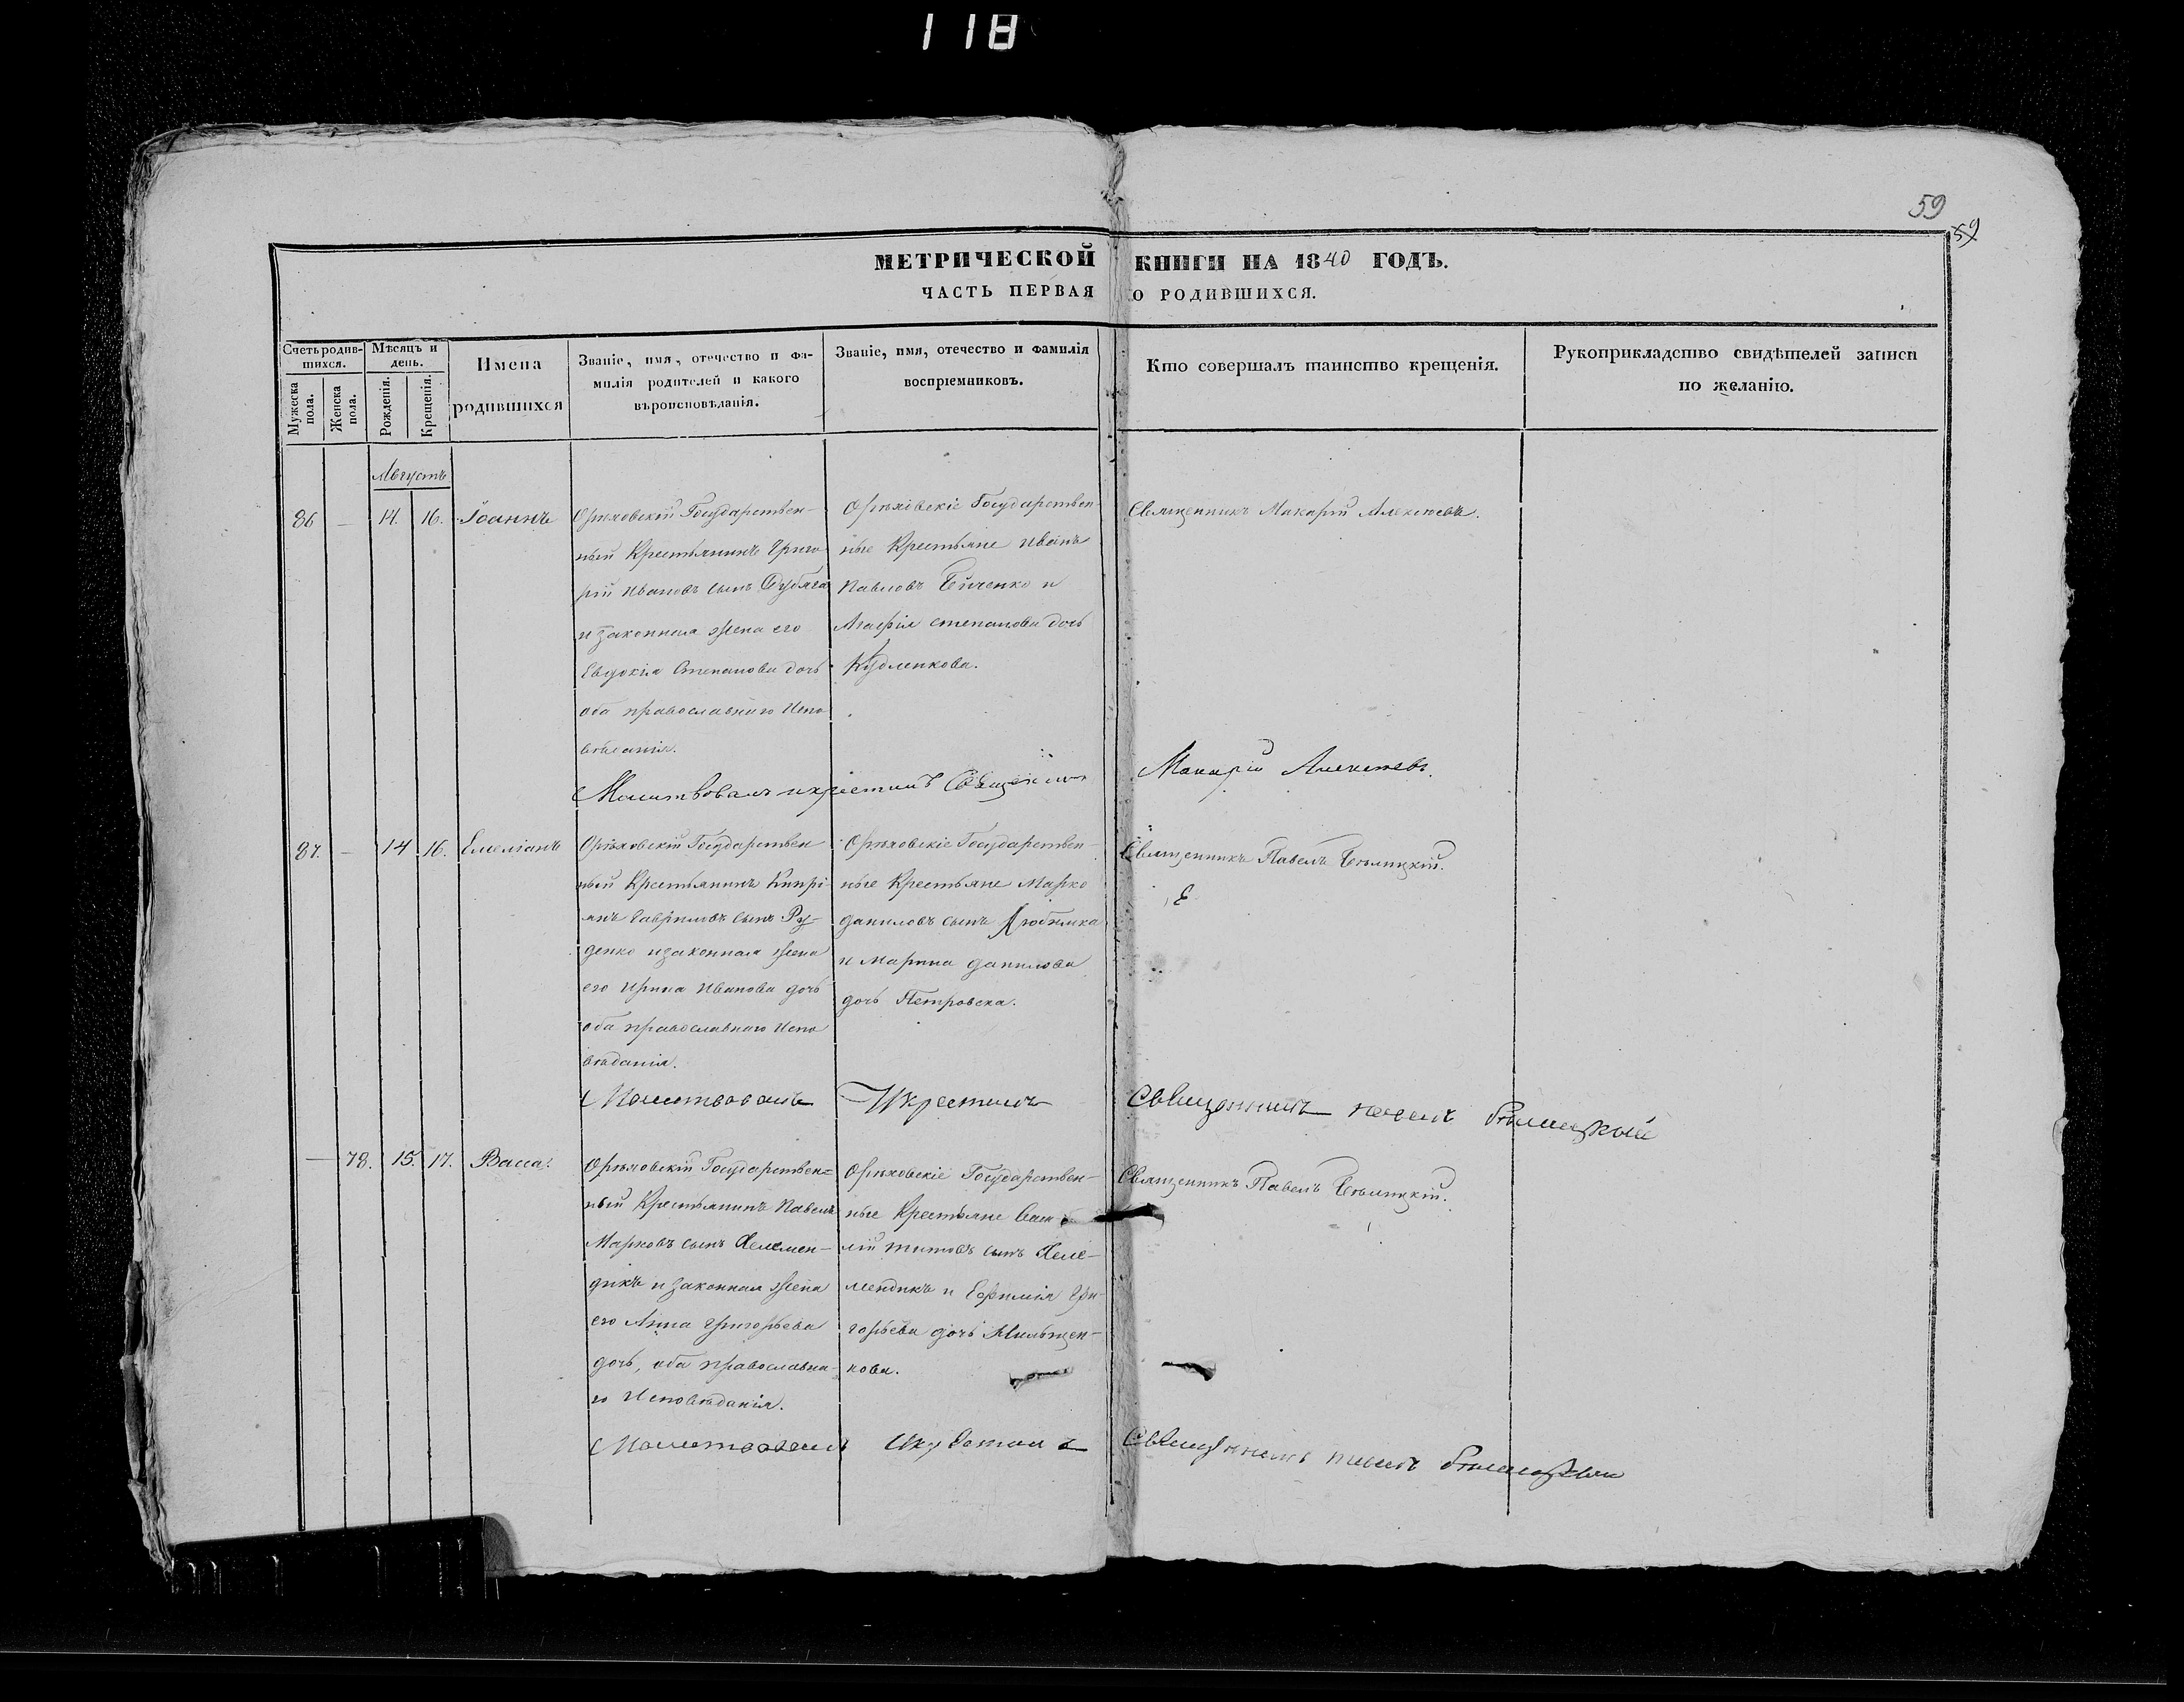 118
59
59
МЕТРИЧЕСКОЙ КНИГИ НА 1840 ГОДЪ.
ЧАСТЬ ПЕРВАЯ О РОДИВШИХСЯ.
Счетъ родив-
шихся.
Мужеска пола.
Женска пола.
Мѣсяцъ и
день.
Рожденія.
Крещенія.
Имена
родившихся
Званіе, имя, отечество и фа-
милія родителей и какого
вѣроисповѣданія.
Званіе, имя, отечество и фамилія
воспріемниковъ.
Кто совершалъ таинство крещенія.
Рукоприкладство свидѣтелей записи
по желанію.
Августъ
86 — 14. 16. Іоаннъ
Орѣховскій Государствен-
ный Крестьянинъ Григо
рій Ивановъ сынъ
и законная жена его
Евдокія Степанова дочь
оба православнаго Испо
вѣданія.
Орѣховскіе Государствен-
ные Крестьяне Иванъ
Павловъ Бѣйченко и
Агафія Степанова дочь
Кудленкова.
Священникъ Макарій Алексѣевъ.
Молитвовалъ и крестилъ Священникъ Макарій Алексѣевъ.
87. — 14 16. Емеліанъ
Орѣховскій Государствен
ный Крестьянинъ Кипрі-
янъ Гавриловъ сынъ Ру-
денко и законная жена
его Ирина Иванова дочь
оба православнаго Испо
вѣданія.
Орѣховскіе Государствен-
ные Крестьяне Марко
Даниловъ сынъ Любимка
и Марина Данилова
дочь Петровска.
Священникъ Павелъ Бѣлицкій.
Молитвовалъ И крестилъ Священникъ Павелъ Бѣлицкый
— 78. 15. 17. Васса.
Орѣховскій Государствен=
ный Крестьянинъ Павелъ
Марковъ сынъ Келемен-
дикъ и законная жена
его Анна Григорьева
дочь, оба православна-
го Исповѣданія.
Орѣховскіе Государствен-
ные Крестьяне Васи
лій Титовъ сынъ Келе-
мендикъ и Ефимія Гри-
горьева дочь Мильщен-
кова.
Священникъ Павелъ Бѣлицкій.
Молитвовалъ И крестилъ Священникъ Павелъ Бѣлицкый